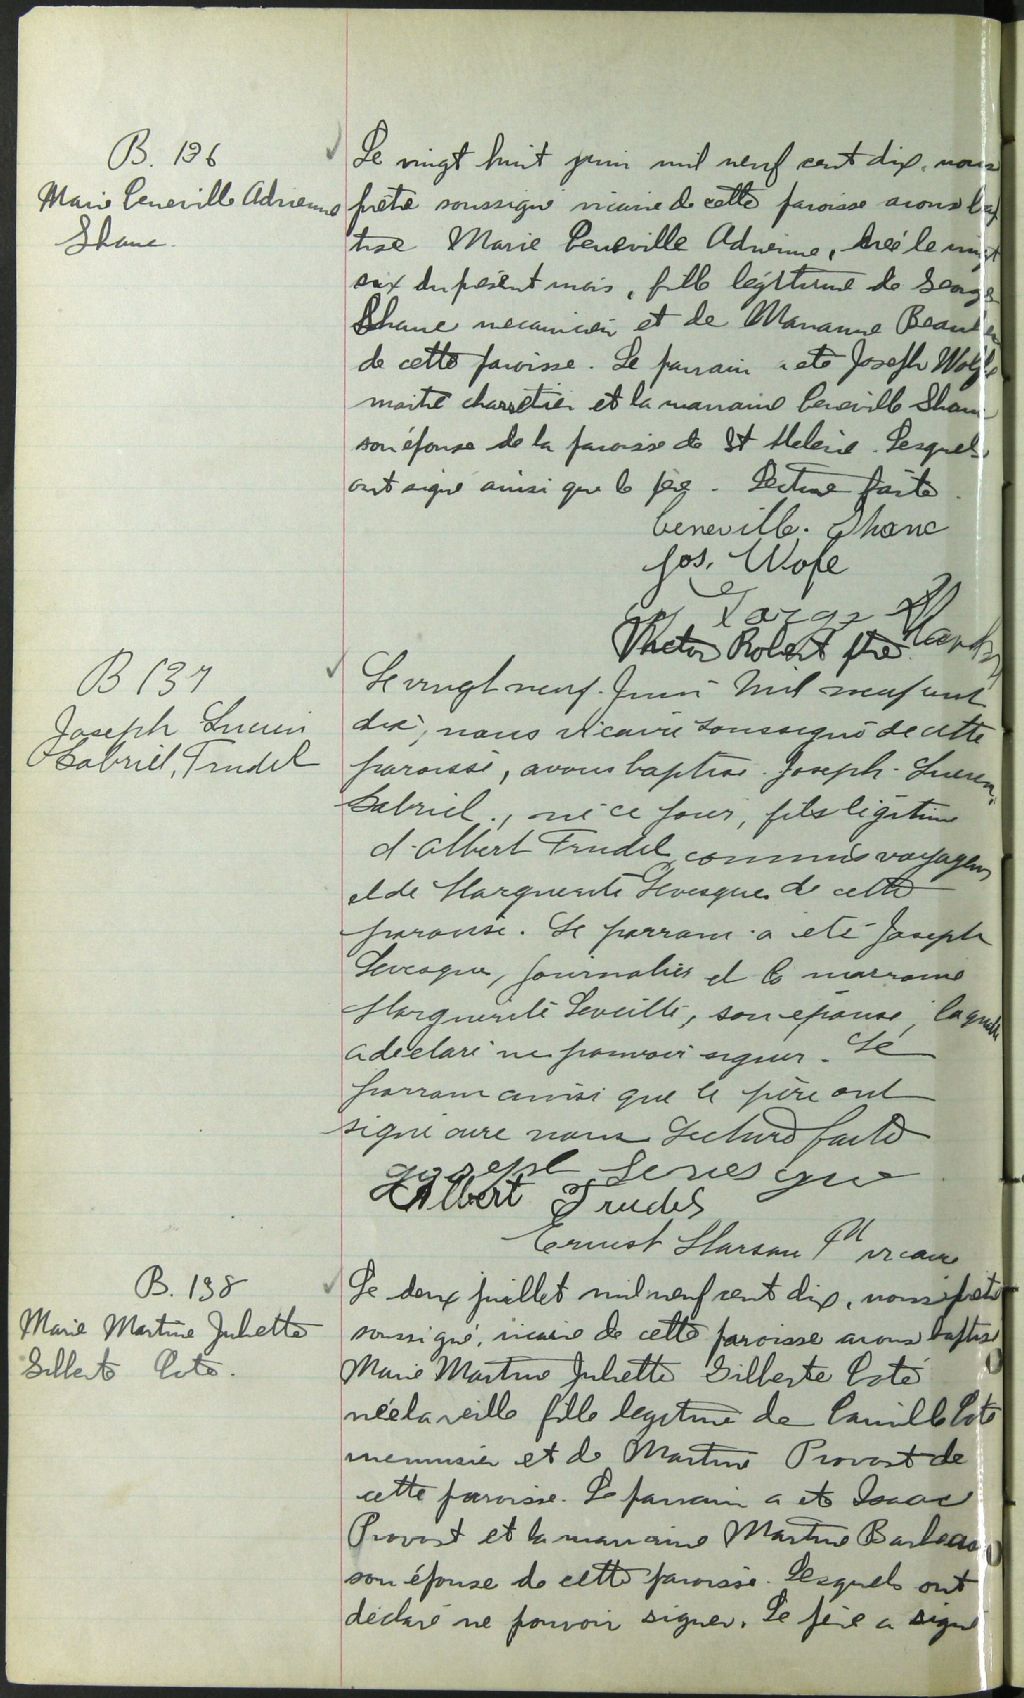 B. 136
Marie Ceneville Adrienne
Shane.
Le vingt huit juin mil neuf cent dix, nous
prêtre soussigné vicaire de cette paroisse avons bap
tisé Marie Ceneville Adrienne, née le vingt
six du présent mois, fille légitime de George
Shane mecanicien et de Marianne Beaulieu
de cette paroisse. Le parrain a été Joseph Wolfe
maitre charretier et la marraine Ceneville Shane
son épouse de la paroisse de St Helène. Lesquels
ont signé ainsi que le père. Lecture faite.
Ceneville. Shane
Jos. Wofe
Victor Robert ptre
B 137
Joseph Lucien
Gabriel, Trudel
Le vingt neuf Juin mil neuf cent
dix, nous vicaire soussigné de cette
paroisse, avons baptisé Joseph-Lucien
Gabriel, né ce jour, fils légitime
d'Albert Trudel, commis voyageur
et de Marguerite Levesque de cette
paroisse. Le parrain a été Joseph
Levesque, journalier et la marraine
Marguerite Leveillé, son épouse, laquelle
a déclaré ne pouvoir signer. Le
parrain ainsi que le père ont
signé avec nous Lecture faite
Joseph Levesque
Albert Trudel
Ernest vicaire
B. 138
Marie Martine Juliette
Gilberte Coté.
Le deux juillet mil neuf cent dix, nous prêtre
soussigné, vicaire de cette paroisse avons baptisé
Marie Martine Juliette Gilberte Coté
née la veille fille legitime de Camille Coté
menuisier et de Martine Provost de
cette paroisse. Le parrain a été Isaac
Provost et la marraine Martine Barbeau
son épouse de cette paroisse. Lesquels ont
déclaré ne pouvoir signer. Le père a signé